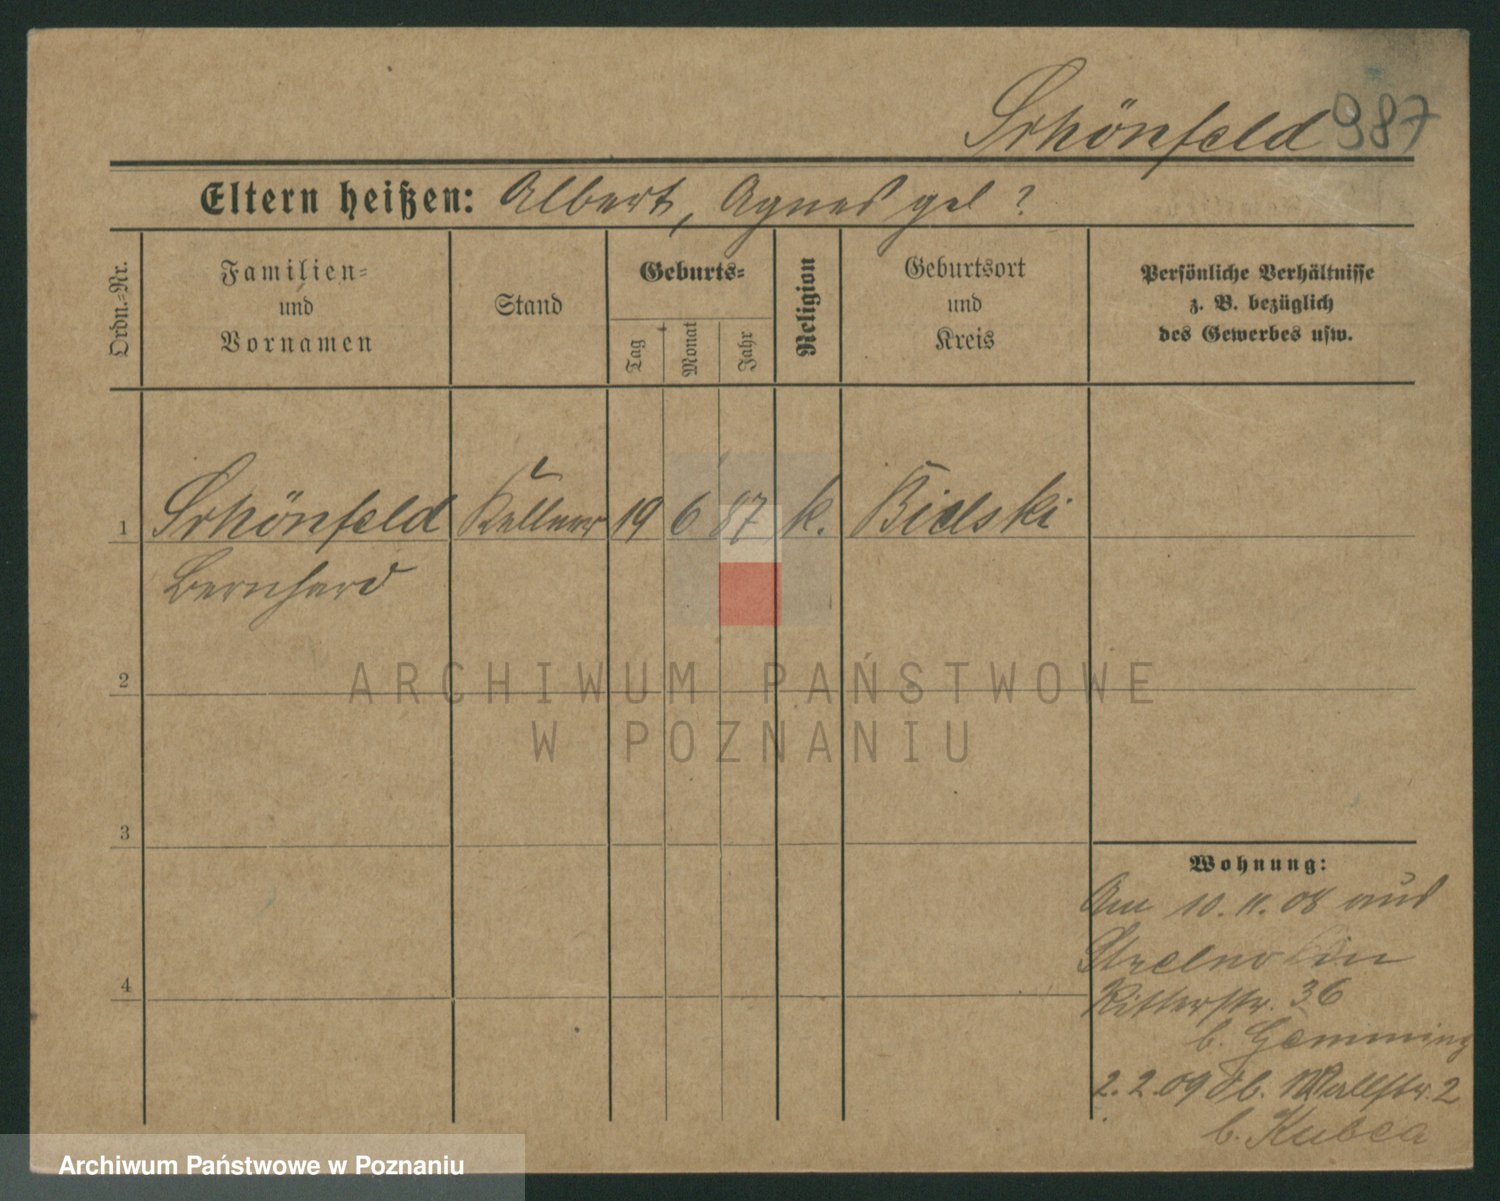 Schönfeld 987
Eltern heißen: Albert, Agnes geb ?
Ordn.=Nr.
Familien=
und
Vornamen
Stand
Geburts=
Tag
Monat
Jahr
Religion
Geburtsort
und
Kreis
Persönliche Verhältnisse
z. B. bezüglich
des Gewerbes usw.
1 Schönfeld Kellner 19 6 87 k. Bielski
Bernhard
2
3
4
Wohnung:
Am 10. 11. 08 aus
Strelno
Ritterstr. 36
b. Gemming
2. 2. 09 Ob. Wallstr. 2
b. Kubca
ARCHIWUM PAŃSTWOWE
W POZNANIU
Archiwum Państwowe w Poznaniu